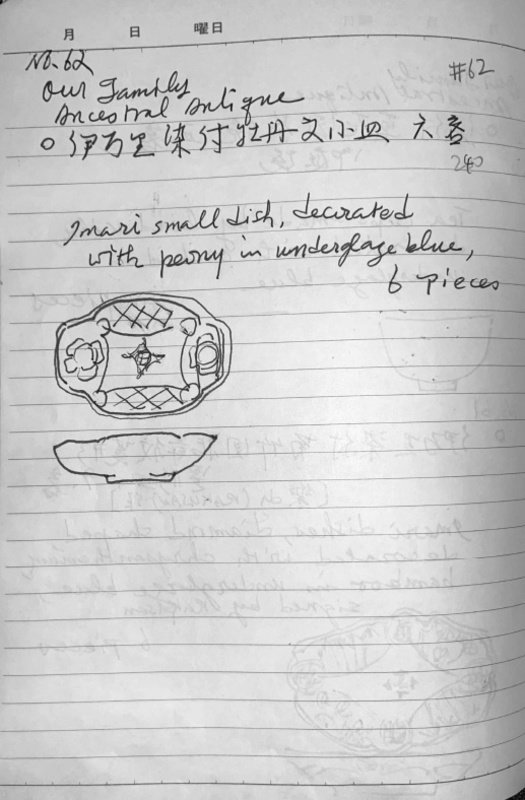 月 日 曜日
No. 62
#62
Our Family
Ancestral Antique
○ 伊万里染付牡丹文小皿 六客
240
Imari small dish, decorated
with peony in underglaze blue,
6 pieces